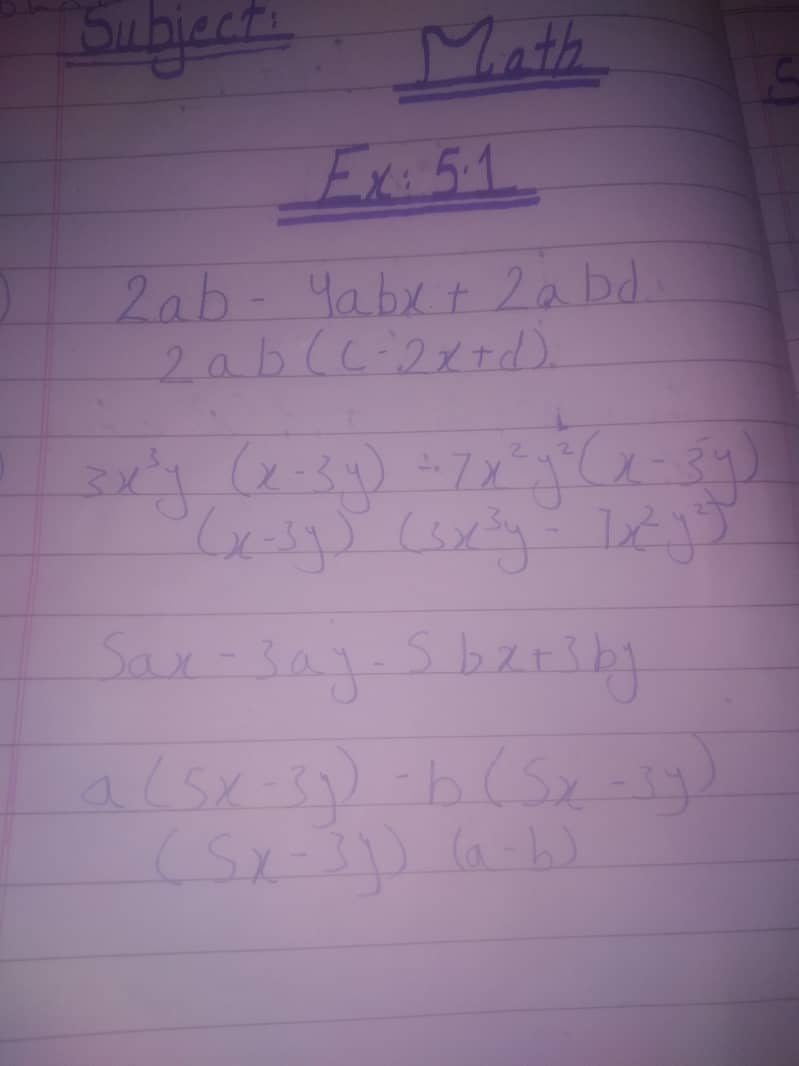 Subject:
Math
Ex: 5.1
2ab - 4abx + 2abd
2ab (c-2x+d).
3x³y (x-3y) - 7x²y²(x-3y)
(x-3y) (3x³y - 7x²y²)
5ax - 3ay - 5bx+3by
a(5x-3y) -b(5x-3y)
(5x-3y) (a-b)